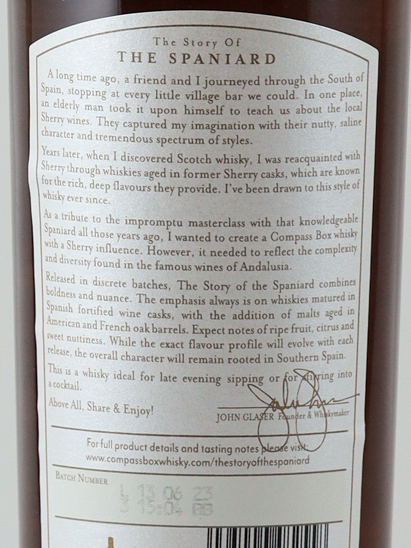 The Story Of
THE SPANIARD
A long time ago, a friend and I journeyed through the South of
Spain, stopping at every little village bar we could. In one place,
an elderly man took it upon himself to teach us about the local
Sherry wines. They captured my imagination with their nutty, saline
character and tremendous spectrum of styles.
Years later, when I discovered Scotch whisky, I was reacquainted with
Sherry through whiskies aged in former Sherry casks, which are known
for the rich, deep flavours they provide. I've been drawn to this style of
whisky ever since.
As a tribute to the impromptu masterclass with that knowledgeable
Spaniard all those years ago, I wanted to create a Compass Box whisky
with a Sherry influence. However, it needed to reflect the complexity
and diversity found in the famous wines of Andalusia.
Released in discrete batches, The Story of the Spaniard combines
boldness and nuance. The emphasis always is on whiskies matured in
Spanish fortified wine casks, with the addition of malts aged in
American and French oak barrels. Expect notes of ripe fruit, citrus and
sweet nuttiness. While the exact flavour profile will evolve with each
release, the overall character will remain rooted in Southern Spain.
This is a whisky ideal for late evening sipping or for sharing into
a cocktail.
Above All, Share & Enjoy!
JOHN GLASER Founder & Whiskymaker
For full product details and tasting notes please visit:
www.compassboxwhisky.com/thestoryofthespaniard
BATCH NUMBER
L 13 06 23
15:04